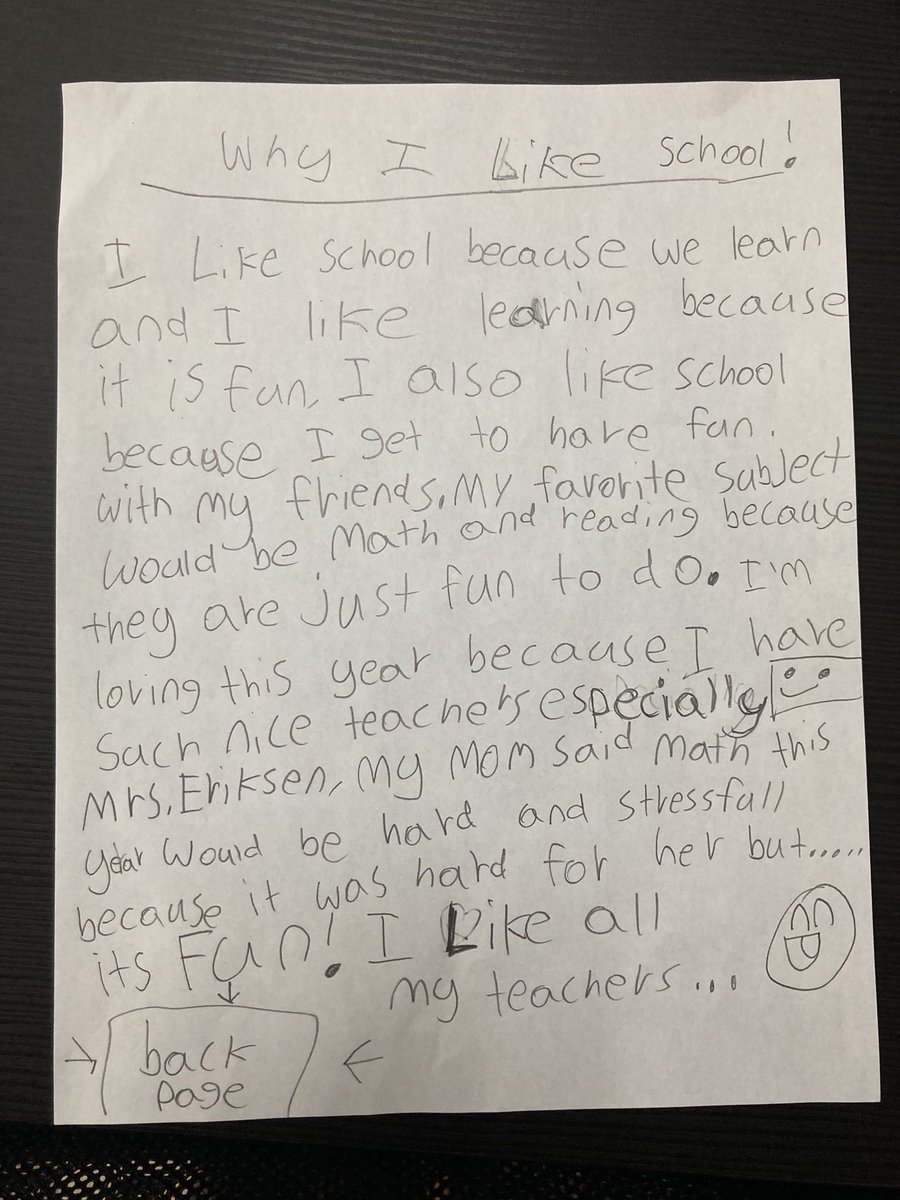 Why I Like School!
I Like school because we learn
and I like learning because
it is fun, I also like school
because I get to have fun.
with my friends. My favorite subject
would be Math and reading because
they are just fun to do. I'm
loving this year because I have
Such nice teachers especially
Mrs. Eriksen, my Mom said Math this
year Would be hard and stressfull
because it was hard for her but.....
its Fun! I Like all
my teachers...
back
page